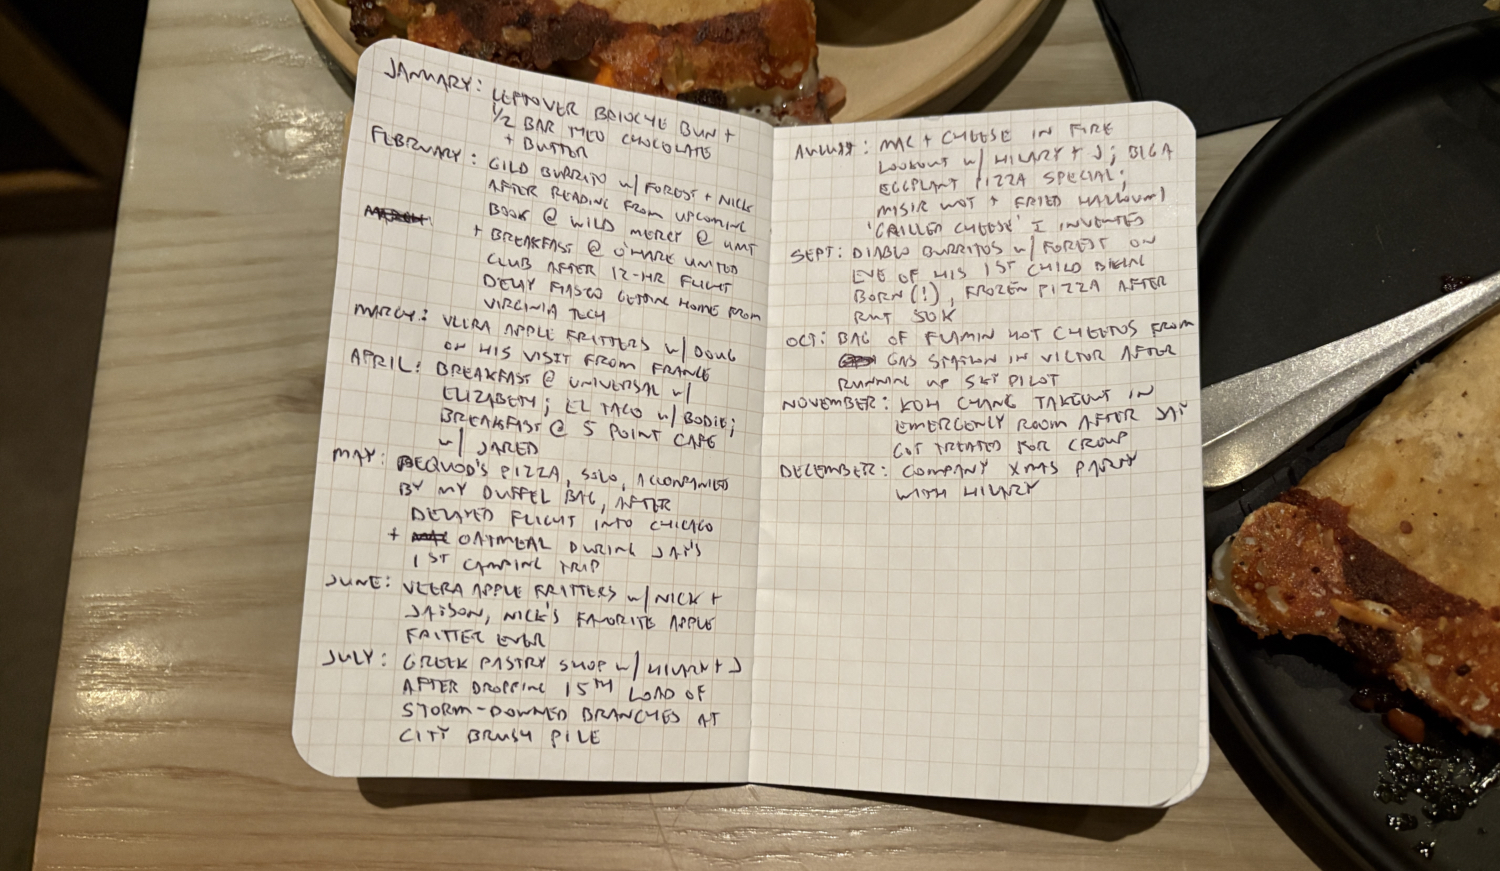 JANUARY: LEFTOVER BRIOCHE BUN +
1/2 BAR THEO CHOCOLATE
+ BUTTER
FEBRUARY: GILD BURRITO w/ FOREST + NICK
AFTER READING FROM UPCOMING
BOOK @ WILD MERCY @ UMT
+ BREAKFAST @ O'HARE UNITED
CLUB AFTER 12-HR FLIGHT
DELAY FIASCO GETTING HOME FROM
VIRGINIA TECH
MARCH: VEERA APPLE FRITTERS w/ DOUG
ON HIS VISIT FROM FRANCE
APRIL: BREAKFAST @ UNIVERSAL w/
ELIZABETH; EL TACO w/ BODIE;
BREAKFAST @ 5 POINT CAFE
w/ JARED
MAY: PEQUOD'S PIZZA, SOLO, ACCOMPANIED
BY MY DUFFEL BAG, AFTER
DELAYED FLIGHT INTO CHICAGO
+ OATMEAL DURING JAY'S
1ST CAMPING TRIP
JUNE: VEERA APPLE FRITTERS w/ NICK +
JAISON, NICK'S FAVORITE APPLE
FRITTER EVER
JULY: GREEK PASTRY SHOP w/ HILARY + J
AFTER DROPPING 15TH LOAD OF
STORM-DOWNED BRANCHES AT
CITY BRUSH PILE
AUGUST: MAC + CHEESE IN FIRE
LOOKOUT w/ HILARY + J; BIGA
EGGPLANT PIZZA SPECIAL;
MISIR WOT + FRIED HALLOUMI
'GRILLED CHEESE' I INVENTED
SEPT: DIABLO BURRITOS w/ FOREST ON
EVE OF HIS 1ST CHILD BEING
BORN (!), FROZEN PIZZA AFTER
RUT 50K
OCT: BAG OF FLAMIN HOT CHEETOS FROM
GAS STATION IN VICTOR AFTER
RUNNING UP SKY PILOT
NOVEMBER: KOH CHANG TAKEOUT IN
EMERGENCY ROOM AFTER JAY
GOT TREATED FOR CROUP
DECEMBER: COMPANY XMAS PARTY
WITH HILARY